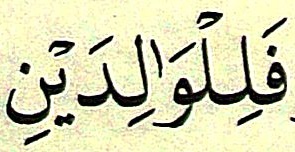 فَلِلْوَٰلِدَيْنِ